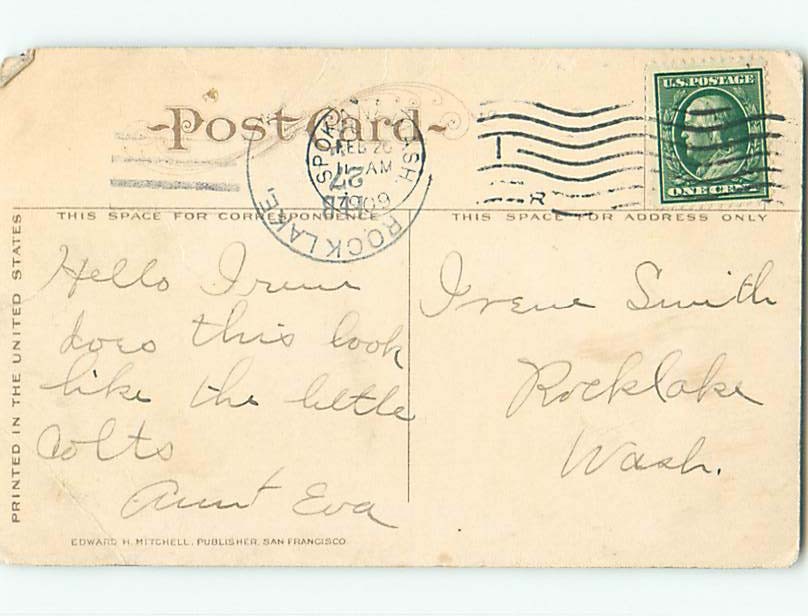 U.S. POSTAGE
Post Card
SPOK WASH.
FEB 26
11 AM
1909
ROCKLAKE,
FEB
27
R
ONE CE
THIS SPACE FOR CORRESPONDENCE
THIS SPACE FOR ADDRESS ONLY
PRINTED IN THE UNITED STATES
Hello Irene
does this look
like the little
Colts
Aunt Eva
Irene Smith
Rocklake
Wash.
EDWARD H. MITCHELL, PUBLISHER, SAN FRANCISCO